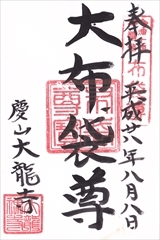 奉拝 平成廿八年八月八日
大布袋尊
慶山大龍寺